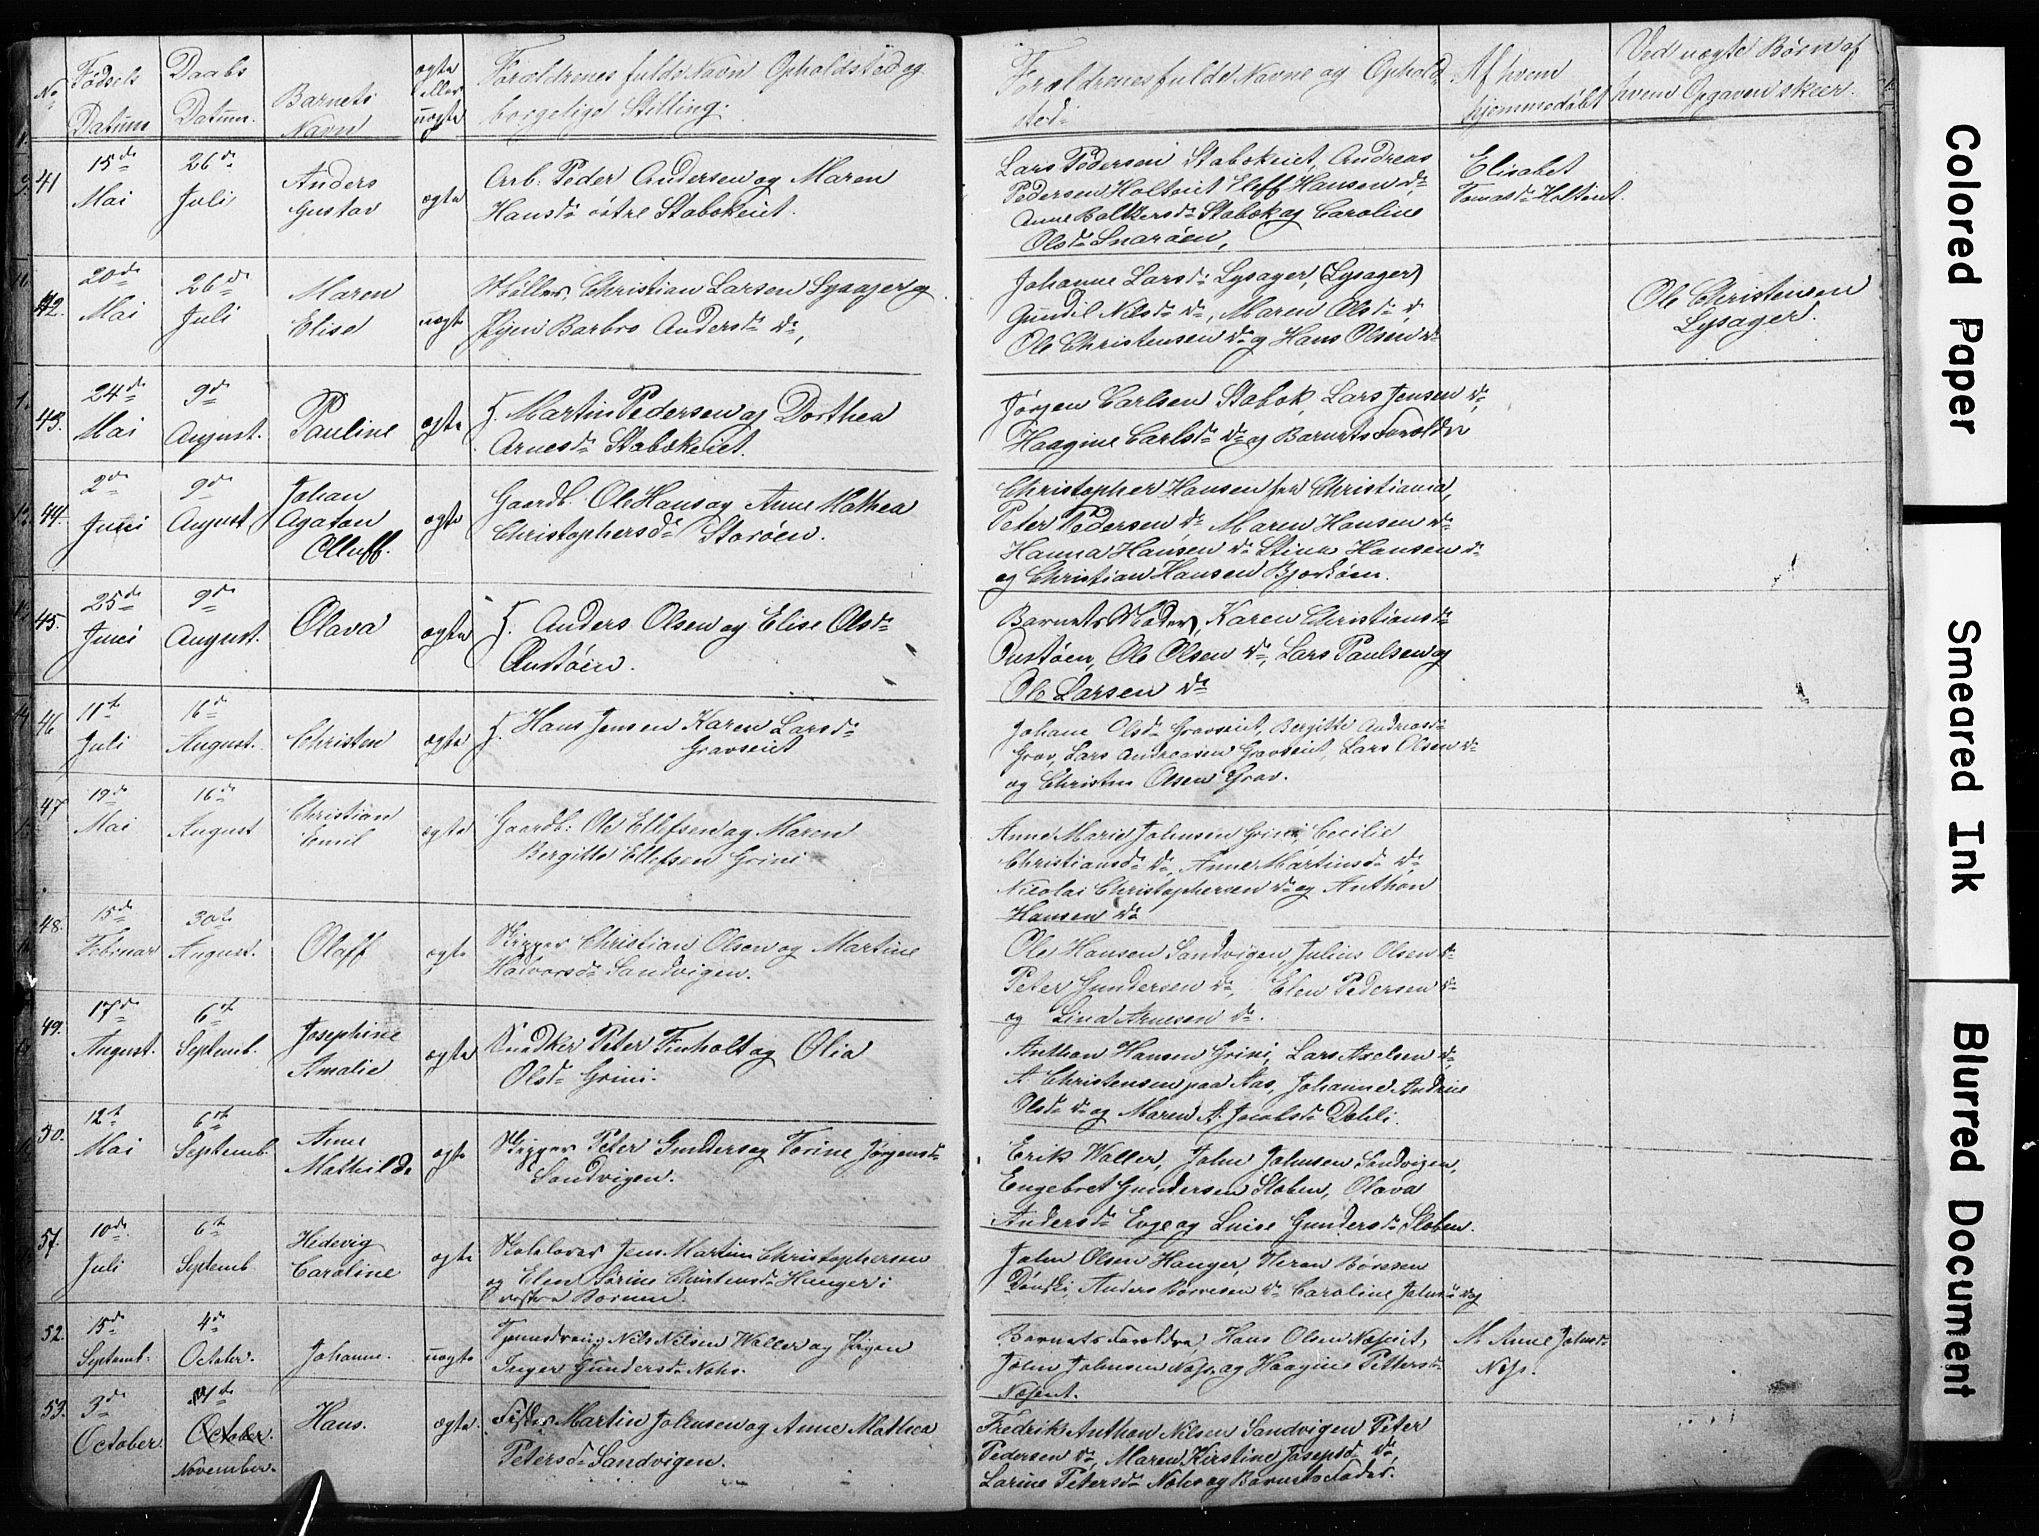 No
Fødsels
Datum
Daabs
Datum.
Barnets
Navn
ægte
eller
uægte
Forældrenes fulde Navn Opholdsted og
borgelige Stilling.
Foraldrenes fulde Navne og Ophold-
sted
Af hvem
hjemmedøbt
Ved uægte Børn af
hvem Opgaven skeer.
41
15de
Mai
26de
Juli
Anders
Gustav
ægte
Arb. Peder Andersen og Maren
Hansd. østre Stabekeiet.
Lars Pedersen Stabekeiet, Andreas
Pedersen Holteiet Eleff Hansen do
Anne Baltzersd. Stabek og Caroline
Olsd. Snarøen,
Elisabet
Tomasd. Holteiet
42.
20de
Mai
26de
Juli
Maren
Elise
uægte
Møller, Christian Larsen Lysager og
Pigen Barbro Andersd. do,
Johanne Larsd. Lysager, (Lysager)
Gundil Nilsd. do, Maren Olsd. do
Ole Christensen do og Hans Olsen do
Ole Christensen
Lysager.
43.
24de
Mai
9de
August.
Pauline
ægte
J. Martin Pedersen og Dorthea
Arnesd. Stabekeiet.
Jørgen Carlsen Stabek, Lars Jensen do,
Haagine Carlsd. do og Barnets Foraldre
44.
2de
Juni
9de
August,
Johan
Agaton
Olluff.
ægte
Gaardb. Ole Hans og Anne Mathea
Christophersd. Storøen.
Christopher Hansen fra Christiania,
Peter Pedersen do Maren Hansen do
Hanna Hansen do Stina Hansen do
og Christian Hansen Bjerkøen.
45.
25de
Juni
9de
August.
Olava
ægte
J. Anders Olsen og Elise Olsd.
Oustøen.
Barnets Moder, Karen Christiansd.
Oustøen, Ole Olsen do, Lars Paulsen og
Ole Larsen do
46
11te
Juli
16de
August.
Christen
ægte
J. Hans Jensen Karen Larsd.
Gravseiet
Johane Olsd. Gravseiet, Bergitte Andreasd.
Grav, Lars Andreasen Gravseiet, Lars Olsen do
og Christen Olsen Grav.
47
19de
Mai
16de
August
Christian
Emil
ægte
Gaardb: Ole Ellefsen og Maren
Bergitte Ellefsen Grini
Anne Marie Johnsen Grini, Cecilie
Christiansd. do, Anne Martinsd. do
Nicolai Christophersen do og Anthon
Hansen do
48.
15de
Februar
30te
August.
Oleff
ægte
Skipper Christian Olsen og Martine
Halvorsd. Sandvigen.
Ole Hansen Sandvigen, Julius Olsen do
Peter Gundersen do, Elen Pedersen do
og Lina Arnesen do.
49.
17de
August.
6te
Septemb.
Josephine
Amalie
ægte
Snedker Peter Finholt og Olia
Olsd. Grini.
Anthon Hansen Grini, Lars Axelsen do,
A. Christensen paa Aas, Johanne Andrine
Olsd. do og Maren A. Jacobsd. Dehli.
50.
12te
Mai
6te
Septemb.
Anne
Mathilde
ægte
Skipper Peter Gunders og Torine Jørgensd.
Sandvigen.
Erik Waller, John Johnsen Sandvigen,
Engebret Gundersen Sloben, Olava
Andersd. Evje og Luise Gundersd. Sloben.
51.
10de
Juli
6te
Septemb.
Hedevig
Caroline
ægte
Skolelærer Jens Martin Christophersen
og Elen Sørine Christensd. Hanger i
vestre Bærum.
John Olsen Hanger, Hans Børresen
Dønski, Anders Børresen do Caroline Johnsd. do og
52.
15de
Septemt.
4de
October.
Johanne.
uægte
Tjenedreng Nils Nilsen Waller og Pigen
Inger Gundersd. Næs.
Barnets Foraldre, Hans Olsen Næseiet,
John Johnsen Næs, og Haagine Pettersd.
Næseiet.
M Anne Johnsd.
Næs.
53.
3de
October.
1de
October.
November.
Hans.
ægte.
Fisker Martin Johnsen og Anne Mathea
Petersd. Sandvigen.
Fredrik Anthon Nilsen Sandvigen Peter
Pedersen do, Maren Kirstine Josepsd. do,
Larine Petersd. Næs og Barnets Fader.
Colored Paper
Smeared Ink
Blurred Document